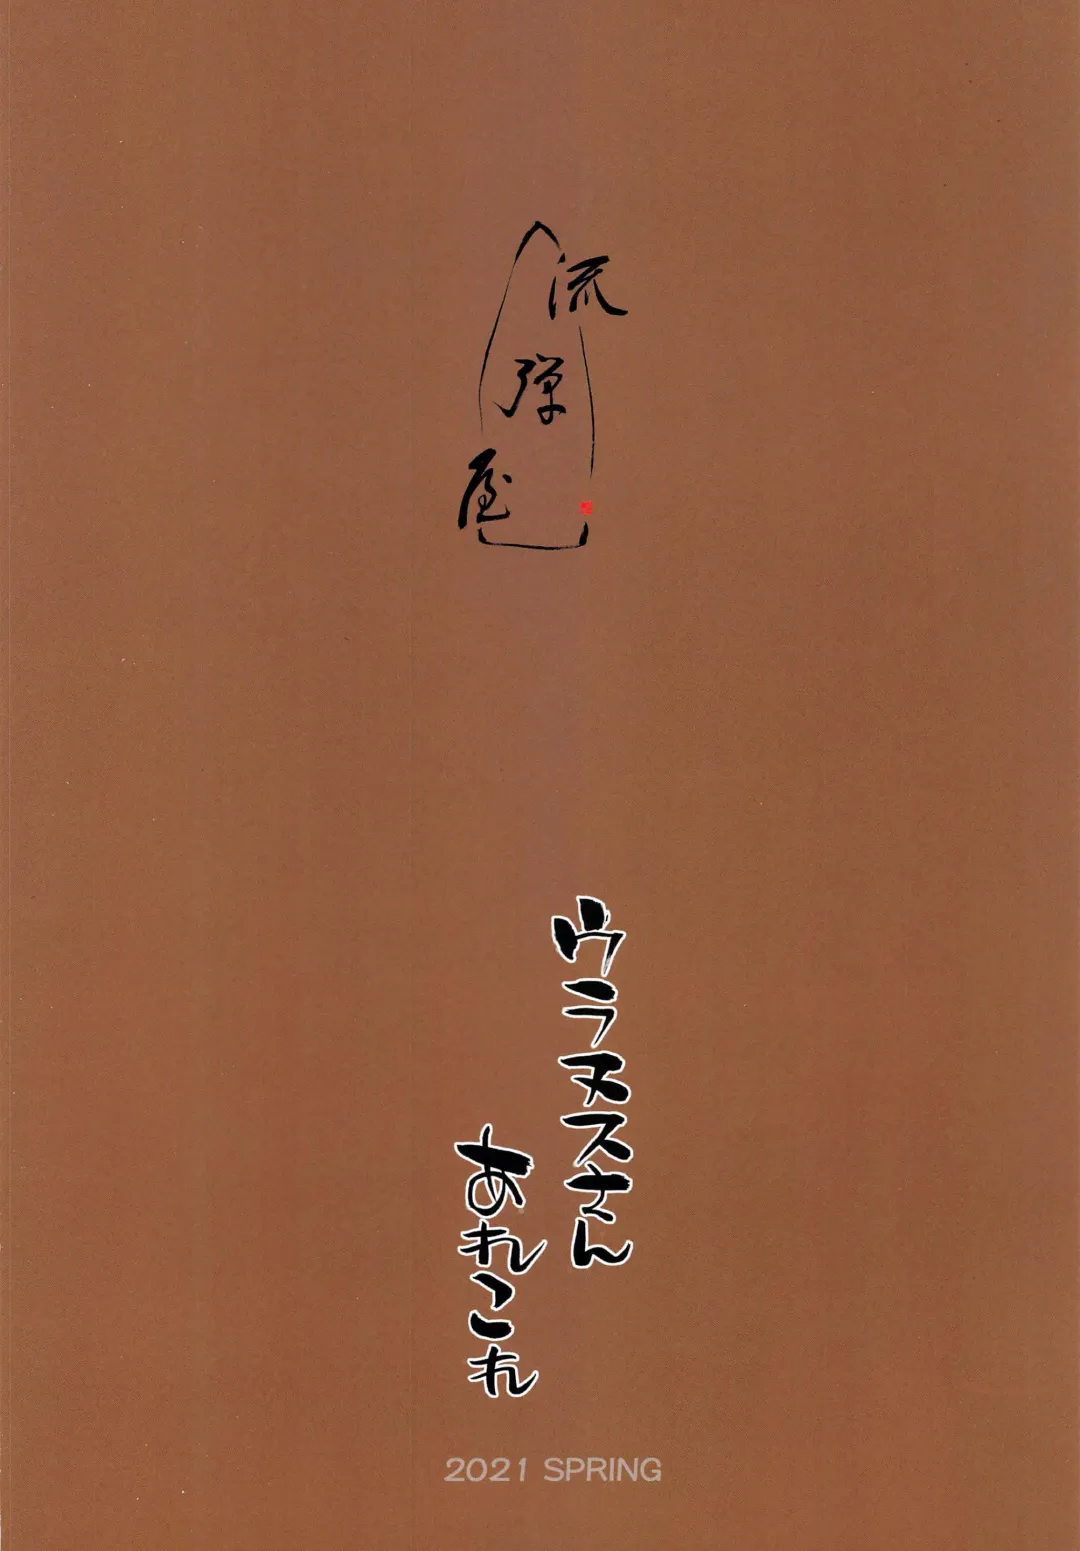 流弾屋
ウラヌスさん
あれこれ
2021 SPRING